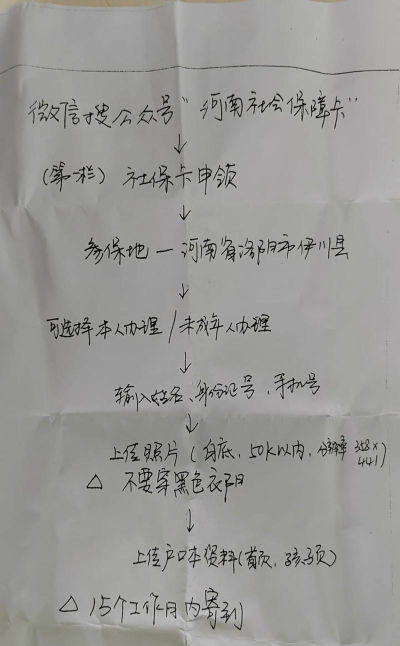 微信搜公众号"河南社会保障卡"
↓
(第一栏) 社保卡申领
↓
参保地一河南省洛阳市伊川县
↓
可选择本人办理/未成年人办理
↓
输入姓名、身份证号、手机号
↓
上传照片(白底,50K以内,分辨率 358×441)
△ 不要穿黑色衣
↓
上传户口本资料(首页,孩子页)
△ 15个工作日内寄到